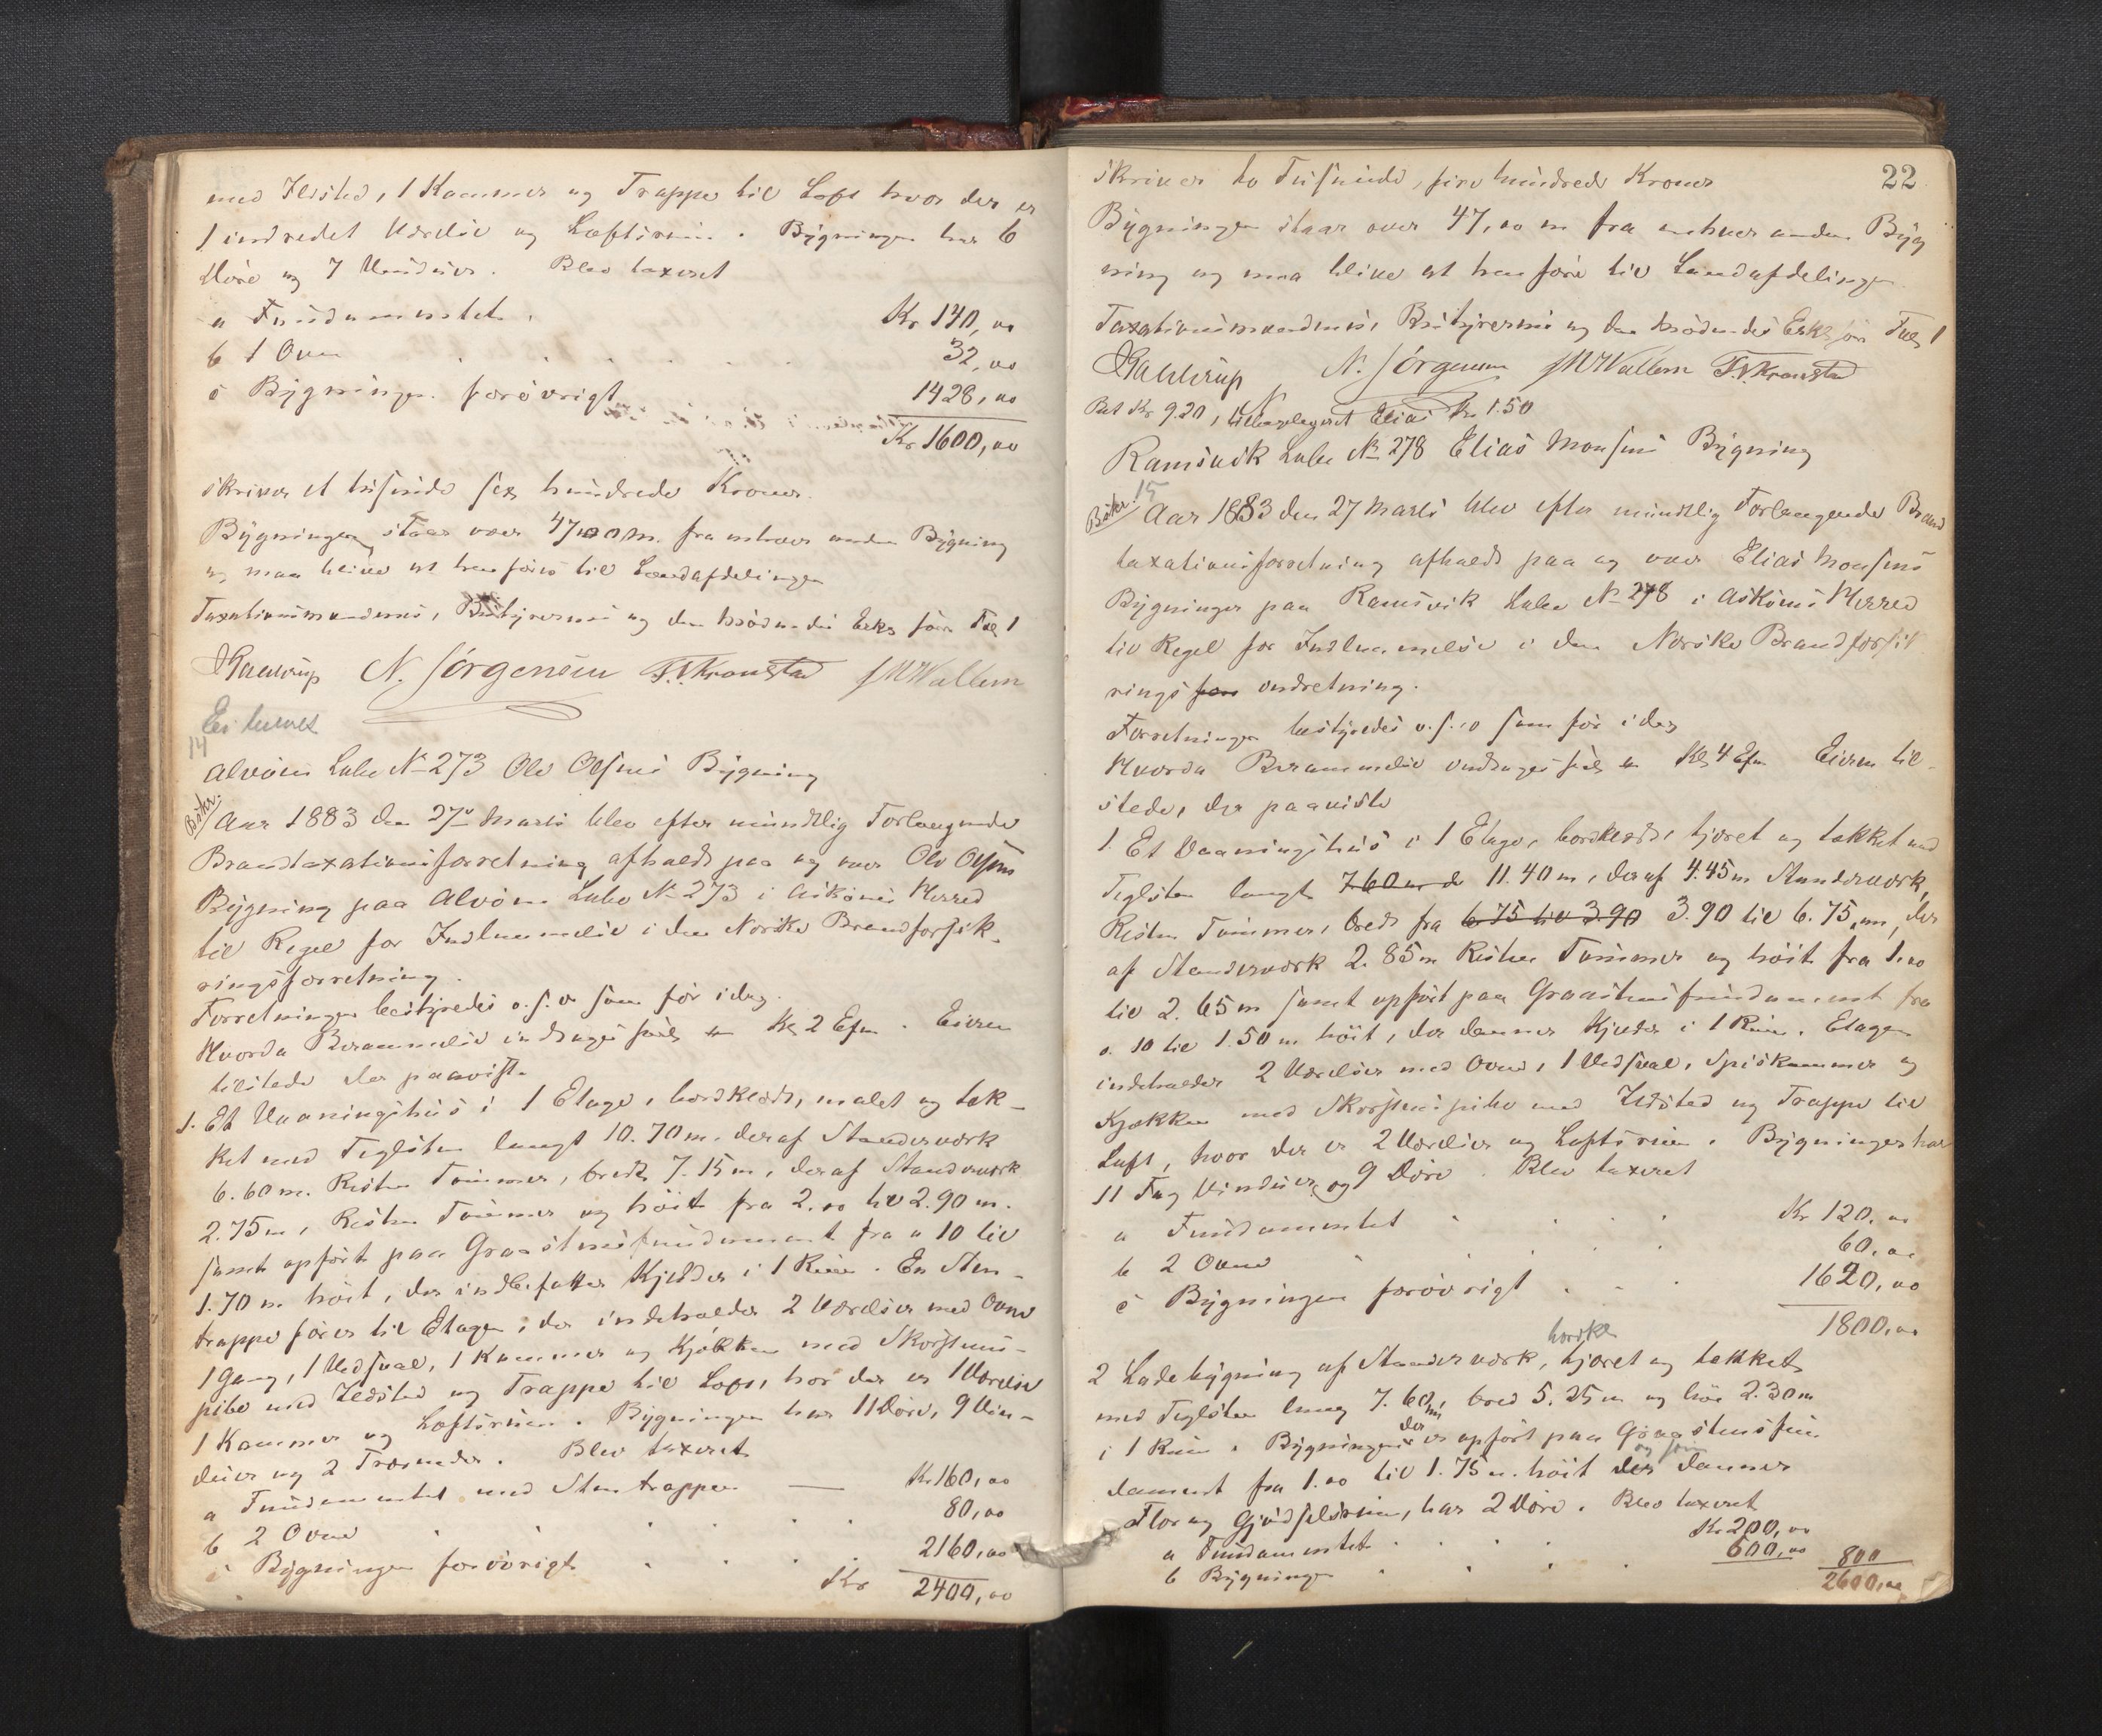 med Ildsted, 1 Kammer og Trappe til Loft hvor der er
1 indredet Værelse og Loftsrum. Bygningen har 6
Döre og 7 Vinduer. Blev taxeret
a Fundamentet. Kr 140,00
b 1 Ovn 32,00
c Bygningen forövrigt 1428,00
Kr 1600,00
skriver et tusinde sex hundrede Kroner.
Bygningen staar over 47,00 m. fra enhver anden Bygning
og maa blive at henföre til Landafdelingen
Taxationsmændenes, Bestyrerens og den mödendes Eeks för Fol 1
N. Jörgensen F. V. Kronstad J M Wallem
14
Alvöen Lube № 273 Ole Olsens Bygning
Beskr.
Aar 1883 den 27de Marts blev efter mundtlig Forlangende
Brandtaxationsforretning afholdt paa og over Ole Olsens
Bygning paa Alvöen Lube № 273 i Asköens Herred
til Regel for Indlemmelse i den Norske Brandforsik-
ringsforretning.
Forretningen bestyredes o.s.v som för idag.
Hvorda Berammelse inddroges fol Kl 2 Efm. Eieren
tilstede der paaviste
1. Et Vaaningshus i 1 Etage, bordklædt, malet og tæk-
ket med Teglsten langt 10.70 m. deraf Standerværk
6.60 m. Resten Tömmer, bredt 7.15 m, deraf Standerværk
2.75 m, Resten Tömmer og höit fra 2.00 til 2.90 m.
samt opfört paa Graastensfundament fra 0 10 til
1.70 m höit, der indbefatter Kjelder i 1 Rum. En Sten-
trappe förer til Etagen, der indeholder 2 Værelser med Ovne
1 Gang, 1 Vedsval, 1 Kammer og Kjökken med Skorstens-
pibe med Ildsted og Trappe til Loft, hvor der er 1 Værelse
1 Kammer og Loftsrum. Bygningen har 11 Döre, 9 Vin-
duer og 2 Trærender. Blev taxeret
a Fundamentet med Stentrappen — Kr 160,00
b 2 Ovne 80,00
c Bygningen forövrigt 2160,00
Kr 2400,00
22
skriver to Tusinde, fire hundrede Kroner
Bygningen staar over 47,00 m fra enhver anden Byg
ning og maa blive at henföre til Landafdelingen
Taxationsmændenes, Bestyrerens og den mödendes Eeks för Fol 1
N. Jörgensen J M Wallem F. V. Kronstad
Bet Kr 9.20, Elias Kr 1.50
Ramsvik Lube № 278 Elias Monsens Bygning
15
Beskr.
Aar 1883 den 27 Marts blev efter mundtlig Forlangende Brand
taxationsforretning afholdt paa og over Elias Monsens
Bygninger paa Ramsvik Lube № 278 i Asköens Herred
til Regel for Indlemmelse i den Norske Brandforsik
rings for indretning.
Forretningen bestyredes o.s.v som för idag
Hvorda Berammelse inddroges fol Kl 4 Efm Eieren til-
stede, der paaviste
1. Et Vaaningshus i 1 Etage, bordklædt, tjæret og tækket med
Teglsten langt 7.60 m de 11.40 m, deraf 4.45 m Standerværk,
Resten Tömmer, bredt fra 6.75 til 3.90 3.90 til 6.75 m, der
af Standerværk 2.85 m Resten Tömmer og höit fra 1.00
til 2.65 m samt opfört paa Graastensfundament fra
0.10 til 1.50 m höit, der danner Kjelder i 1 Rum. Etagen
indeholder 2 Værelser med Ovne, 1 Vedsval, Spiskammer og
Kjökken med Skorstenspibe med Ildsted og Trappe til
Loft, hvor der er 2 Værelser og Loftsrum. Bygningen har
11 Fag Vinduer og 9 Döre. Blev taxeret
a Fundamentet Kr 120,00
b 2 Ovne 60,00
c Bygningen forövrigt 1620,00
1800,00
bordkl
2 Ladebygning af Standerværk, tjæret og tækket
med Teglsten lang 7.60 m, bred 5.25 m og höi 2.30 m
i 1 Rum. Bygningen der er opfört paa Graastensfun
og som
dament fra 1.00 til 1.75 m. höit der danner
Flor og Gjödselsrum, har 2 Döre. Blev taxeret
a Fundamentet Kr 200,00
b Bygningen 600,00 800
2600,00